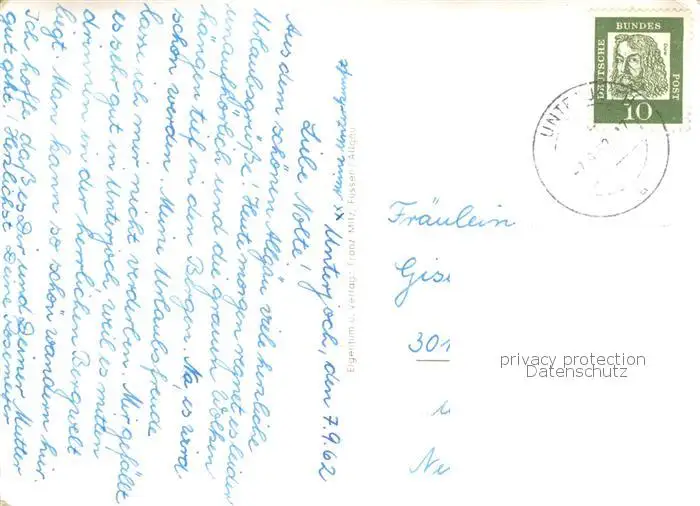 xx Unterjoch, den 7.9.62
Liebe Nolte!
Aus dem schönen Allgäu viele herzliche
Urlaubsgrüße! Heute morgen regnet es leider
unaufhörlich und die grauen Wolken
hängen tief in den Bergen. Na, es wird
schon werden. Meine Urlaubsfreude
lass ich mir nicht verderben. Mir gefällt
es sehr gut in Unterjoch, weil es mitten
drinnen in der herrlichen Bergwelt
liegt. Man kann so schön wandern hier.
Ich hoffe, daß es Dir und Deiner Mutter
gut geht! Herzlichst Deine
Eigentum u. Verlag: Franz Milz, Füssen / Allgäu
DEUTSCHE
BUNDES
POST
10
UNTE
Fräulein
Gis
301
Ne
privacy protection
Datenschutz